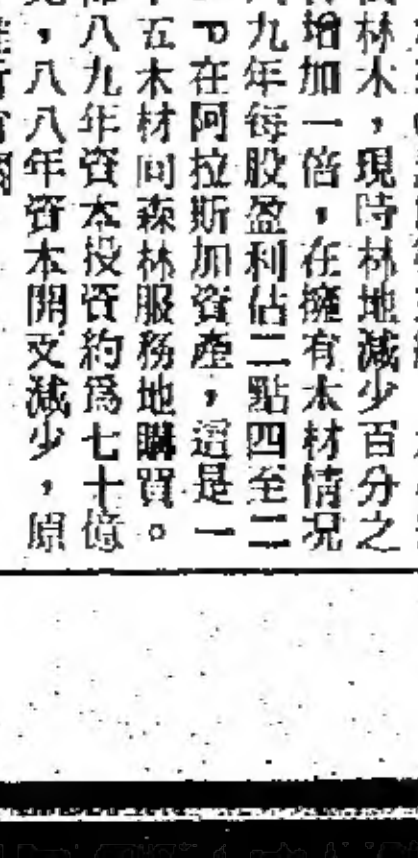 林木，現時林地減少百分之
增加一倍，在擁有木材情況
九年每股盈利佔二點四至二
「在阿拉斯加資產，這是一
五木材向森林服務地購買。
八九年資本投資約爲七十億
，八八年資本開支減少，原